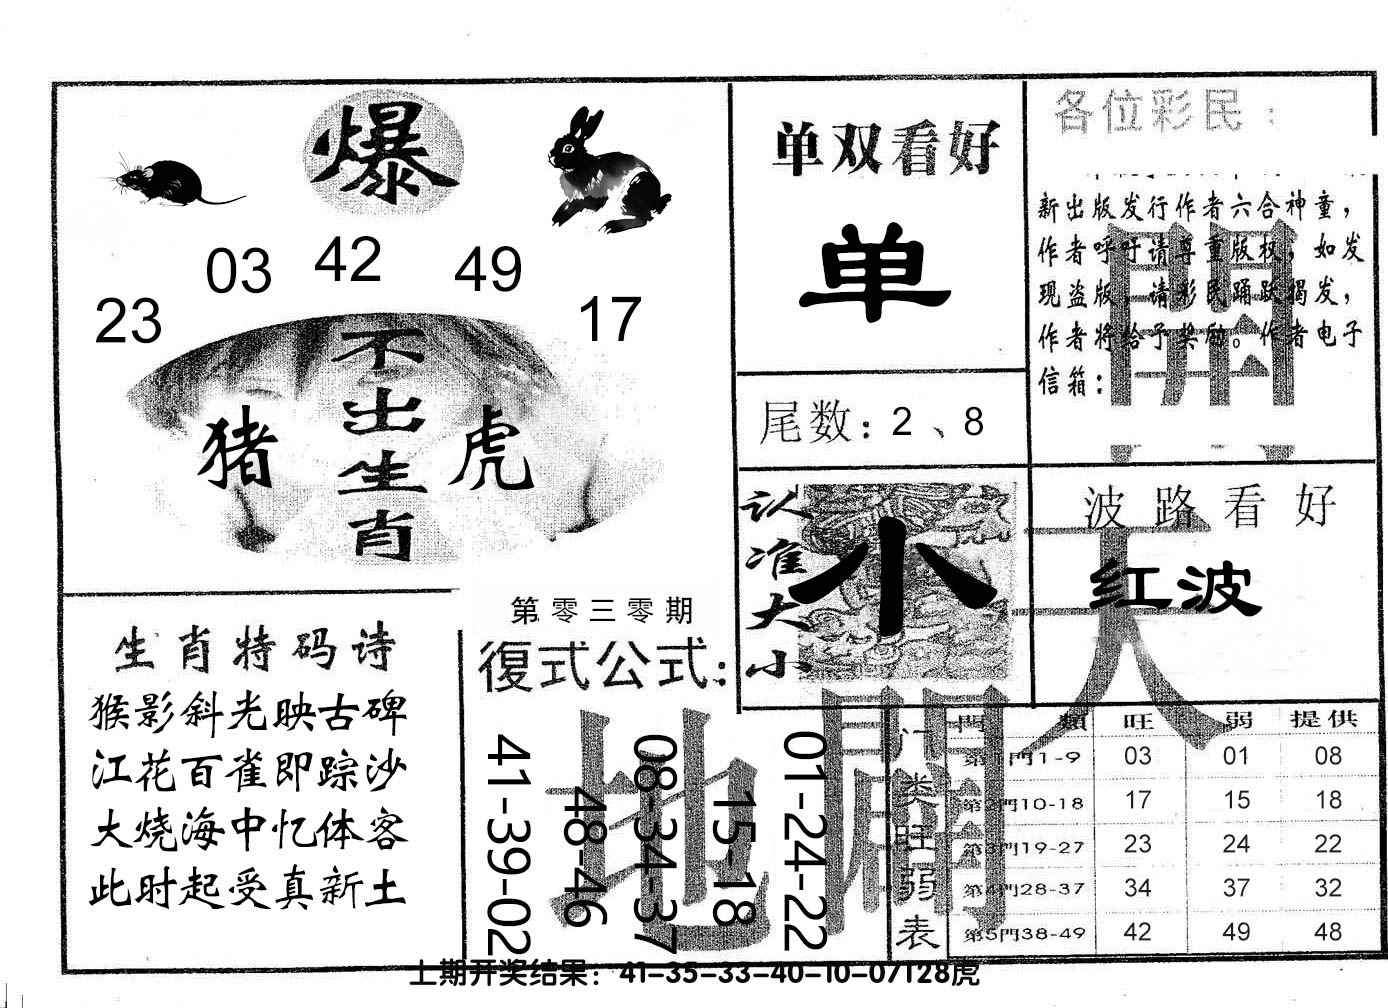 爆
03 42 49
23 17
不出生肖
猪 虎
单双看好
单
尾数：2、8
各位彩民：
新出版发行作者六合神童，
作者呼吁请尊重版权，如发
现盗版，请彩民踊跃揭发，
作者将给予奖励。作者电子
信箱：
認准大小
小
波路看好
红波
天
開
地
闢
生肖特码诗
猴影斜光映古碑
江花百雀即踪沙
大烧海中忆体客
此时起受真新土
第零三零期
復式公式：
41-39-02
48-46
08-34-37
15-18
01-24-22
门类旺弱表
門類 旺 弱 提供
第1門1-9 03 01 08
第2門10-18 17 15 18
第3門19-27 23 24 22
第4門28-37 34 37 32
第5門38-49 42 49 48
上期开奖结果：41-35-33-40-10-07T28虎